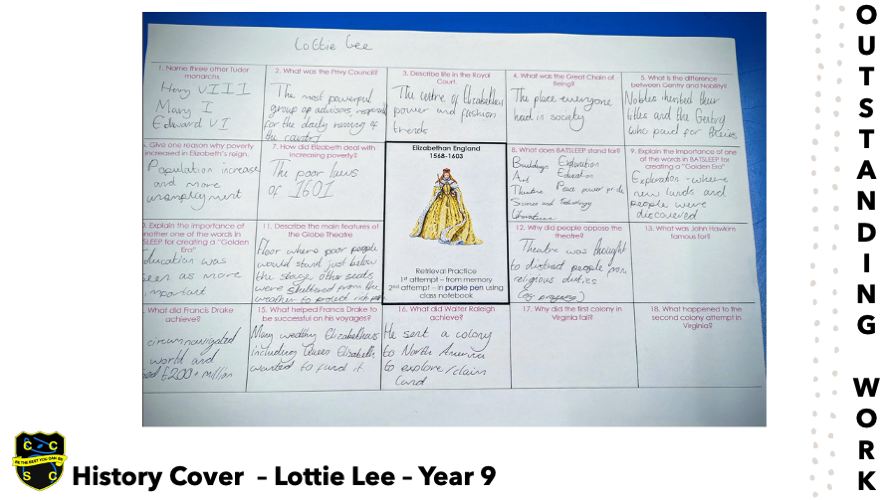 Lottie Lee
1. Name three other Tudor
monarchs.
Henry VIII
Mary I
Edward VI
2. What was the Privy Council?
The most powerful
group of advisors, responsible
for the daily running of
the country
3. Describe life in the Royal
Court.
The centre of Elizabethan
power and fashion
trends
4. What was the Great Chain of
Being?
The place everyone
had in society
5. What is the difference
between Gentry and Nobility?
Nobles inherited their
titles and the Gentry
who paid for theirs
Give one reason why poverty
increased in Elizabeth's reign.
Population increase
and more
unemployment
7. How did Elizabeth deal with
increasing poverty?
The poor laws
of 1601
Elizabethan England
1568-1603
Retrieval Practice
1st attempt – from memory
2nd attempt – in purple pen using
class notebook
8. What does BATSLEEP stand for?
Buildings
Art
Theatre
Science and Technology
Literature
Exploration
Education
Peace power pride
9. Explain the importance of one
of the words in BATSLEEP for
creating a "Golden Era"
Exploration - where
new lands and
people were
discovered
Explain the importance of
another one of the words in
SLEEP for creating a "Golden
Era"
Education was
seen as more
important
11. Describe the main features of
the Globe Theatre
Floor where poor people
would stand just below
the stage other seats
were sheltered from the
weather to protect rich
12. Why did people oppose the
theatre?
Theatre was thought
to distract people from
religious duties
13. What was John Hawkins
famous for?
What did Francis Drake
achieve?
circumnavigated
world and
£200+ million
15. What helped Francis Drake to
be successful on his voyages?
Many wealthy Elizabethans
including Queen Elizabeth
wanted to fund it.
16. What did Walter Raleigh
achieve?
He sent a colony
to North America
to explore/claim
land
17. Why did the first colony in
Virginia fail?
18. What happened to the
second colony attempt in
Virginia?
OUTSTANDING WORK
C C
BE THE BEST YOU CAN BE
S C
History Cover – Lottie Lee – Year 9